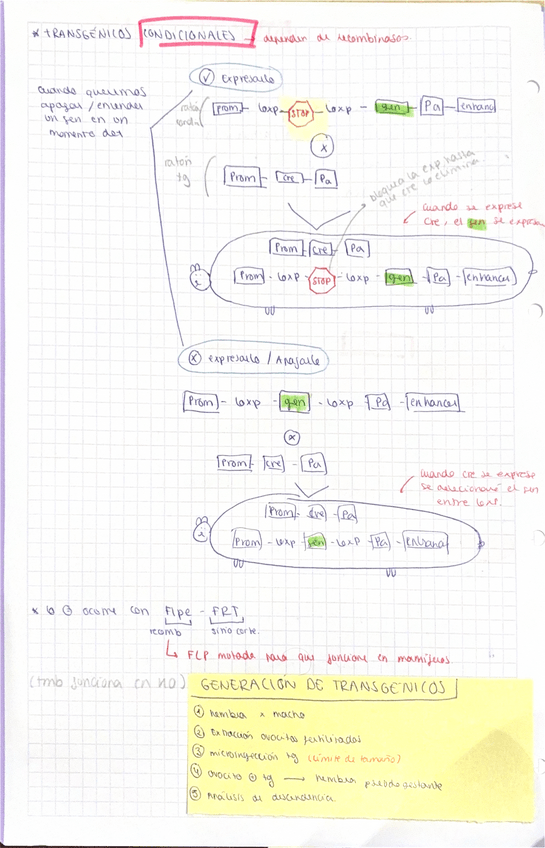 * TRANSGÉNICOS CONDICIONALES → dependen de recombinasas.
cuando queremos
apagar / encender
un gen en un
momento det
✓ Expresarlo
ratón
Prom - loxp - STOP - loxp - gen - Pa - enhanc
x
ratón
tg
Prom - cre - Pa
bloquea la exp hasta
que cre lo elimina.
cuando se exprese
cre, el gen se expresa
Prom - cre - Pa
Prom - loxp - STOP - loxp - gen - Pa - enhancer
x expresarlo / Apagarlo
Prom - loxp - gen - loxp - Pa - enhancer
x
Prom - cre - Pa
cuando cre se exprese
se delecionará el gen
entre loxP.
Prom - cre - Pa
Prom - loxp - gen - loxp - Pa - enhancer
* lo = ocurre con Flpe - FRT
recomb
sitio corte.
↳ FLP mutada para que funcione en mamíferos
(tmb funciona en no)
GENERACIÓN DE TRANSGÉNICOS
1 hembra x macho
2 Extracción ovocitos fertilizados
3 microinyección tg (límite de tamaño)
4 ovocito + tg → hembra pseudogestante
5 Análisis de descendencia